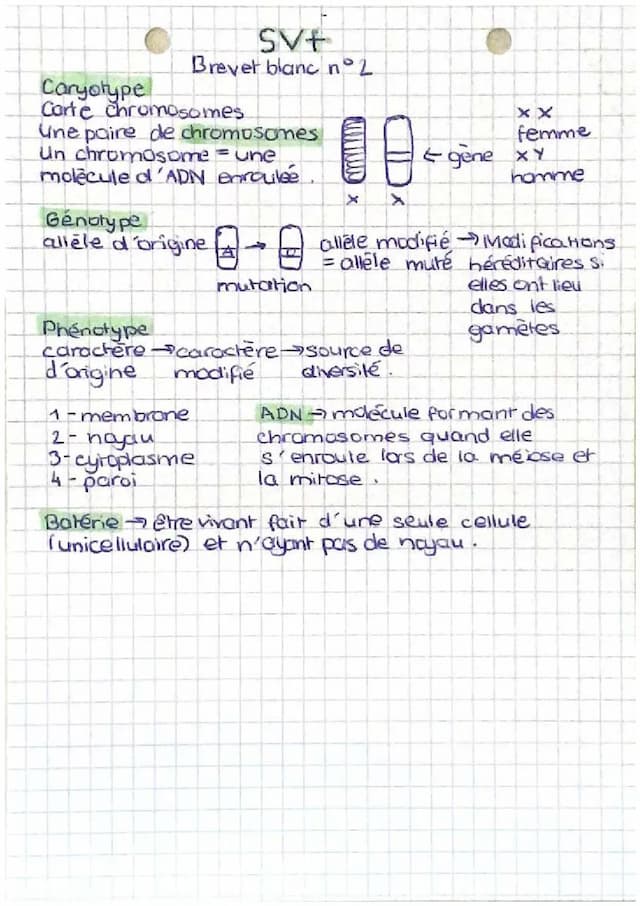 SVt
Brevet blanc n°2
Caryotype
Carte chromosomes
Une paire de chromosomes
Un chromosome = une
molécule d'ADN enroulée.
← gène
x x
femme
x y
homme
x x
Génotype
allèle d'origine A → D allèle modifié → Modifications
= allèle muté héréditaires si
mutation elles ont lieu
dans les
gamètes
Phénotype
caractère → caractère → source de
d'origine modifié diversité.
1 - membrane
2 - noyau
3 - cytoplasme
4 - paroi
ADN → molécule formant des
chromosomes quand elle
s'enroule lors de la méiose et
la mitose.
Batérie → être vivant fait d'une seule cellule
(unicellulaire) et n'ayant pas de noyau.